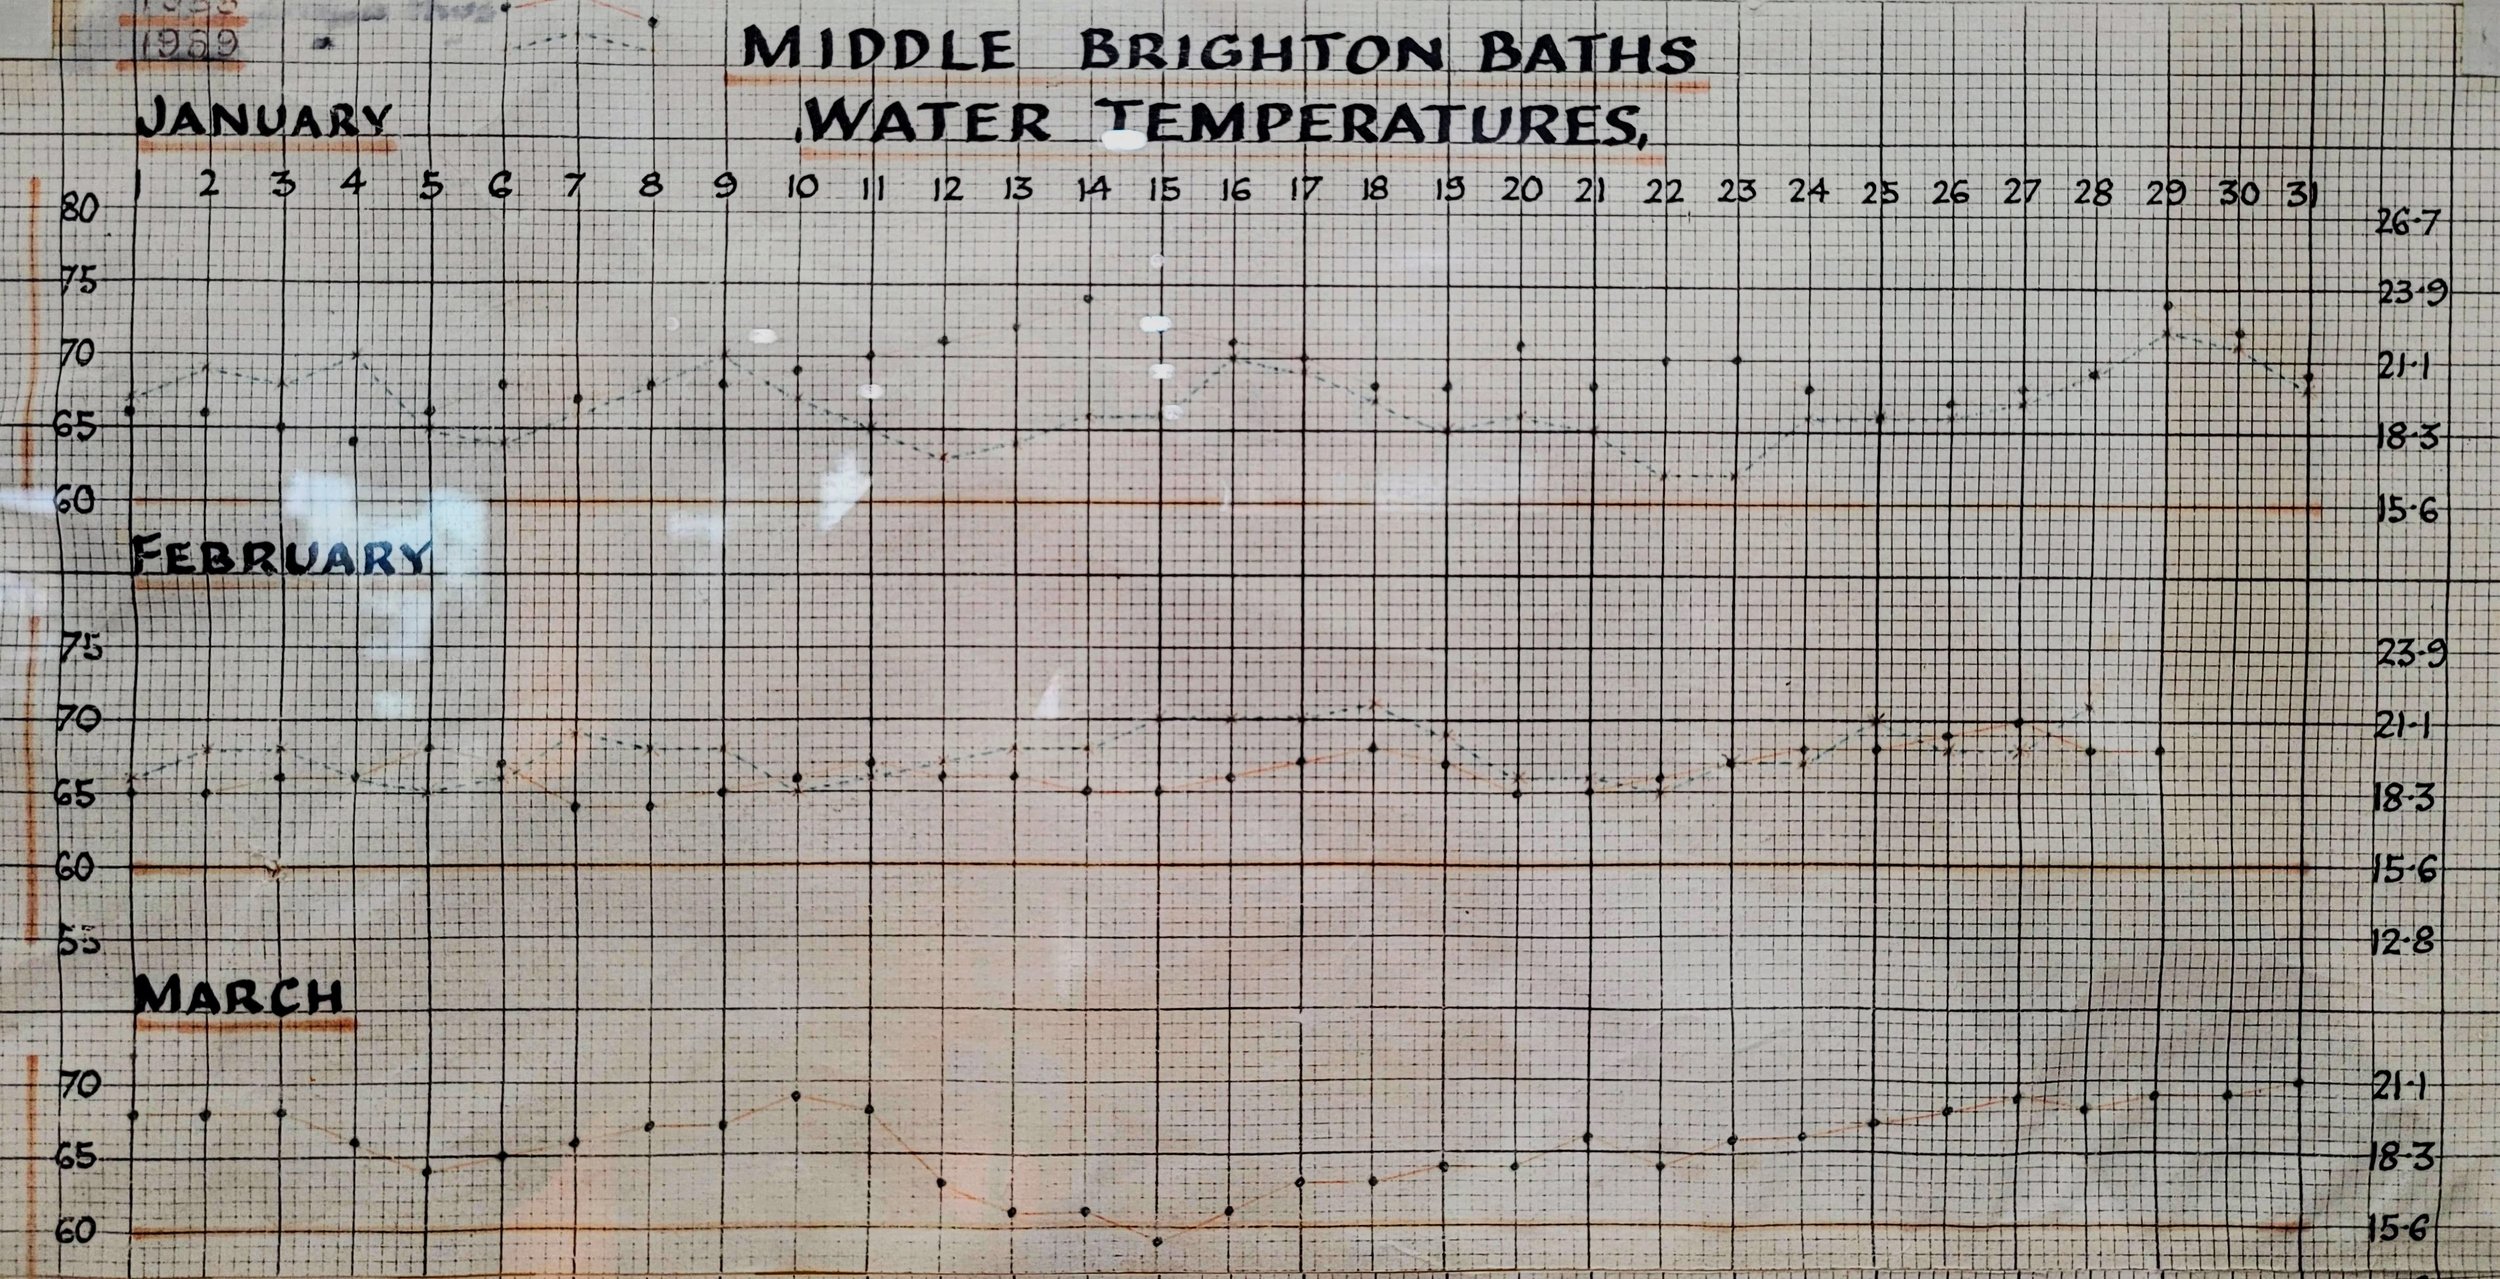 1959
MIDDLE BRIGHTON BATHS
WATER TEMPERATURES,
JANUARY
1 2 3 4 5 6 7 8 9 10 11 12 13 14 15 16 17 18 19 20 21 22 23 24 25 26 27 28 29 30 31
80 26·7
75 23·9
70 21·1
65 18·3
60 15·6
FEBRUARY
75 23·9
70 21·1
65 18·3
60 15·6
55 12·8
MARCH
70 21·1
65 18·3
60 15·6